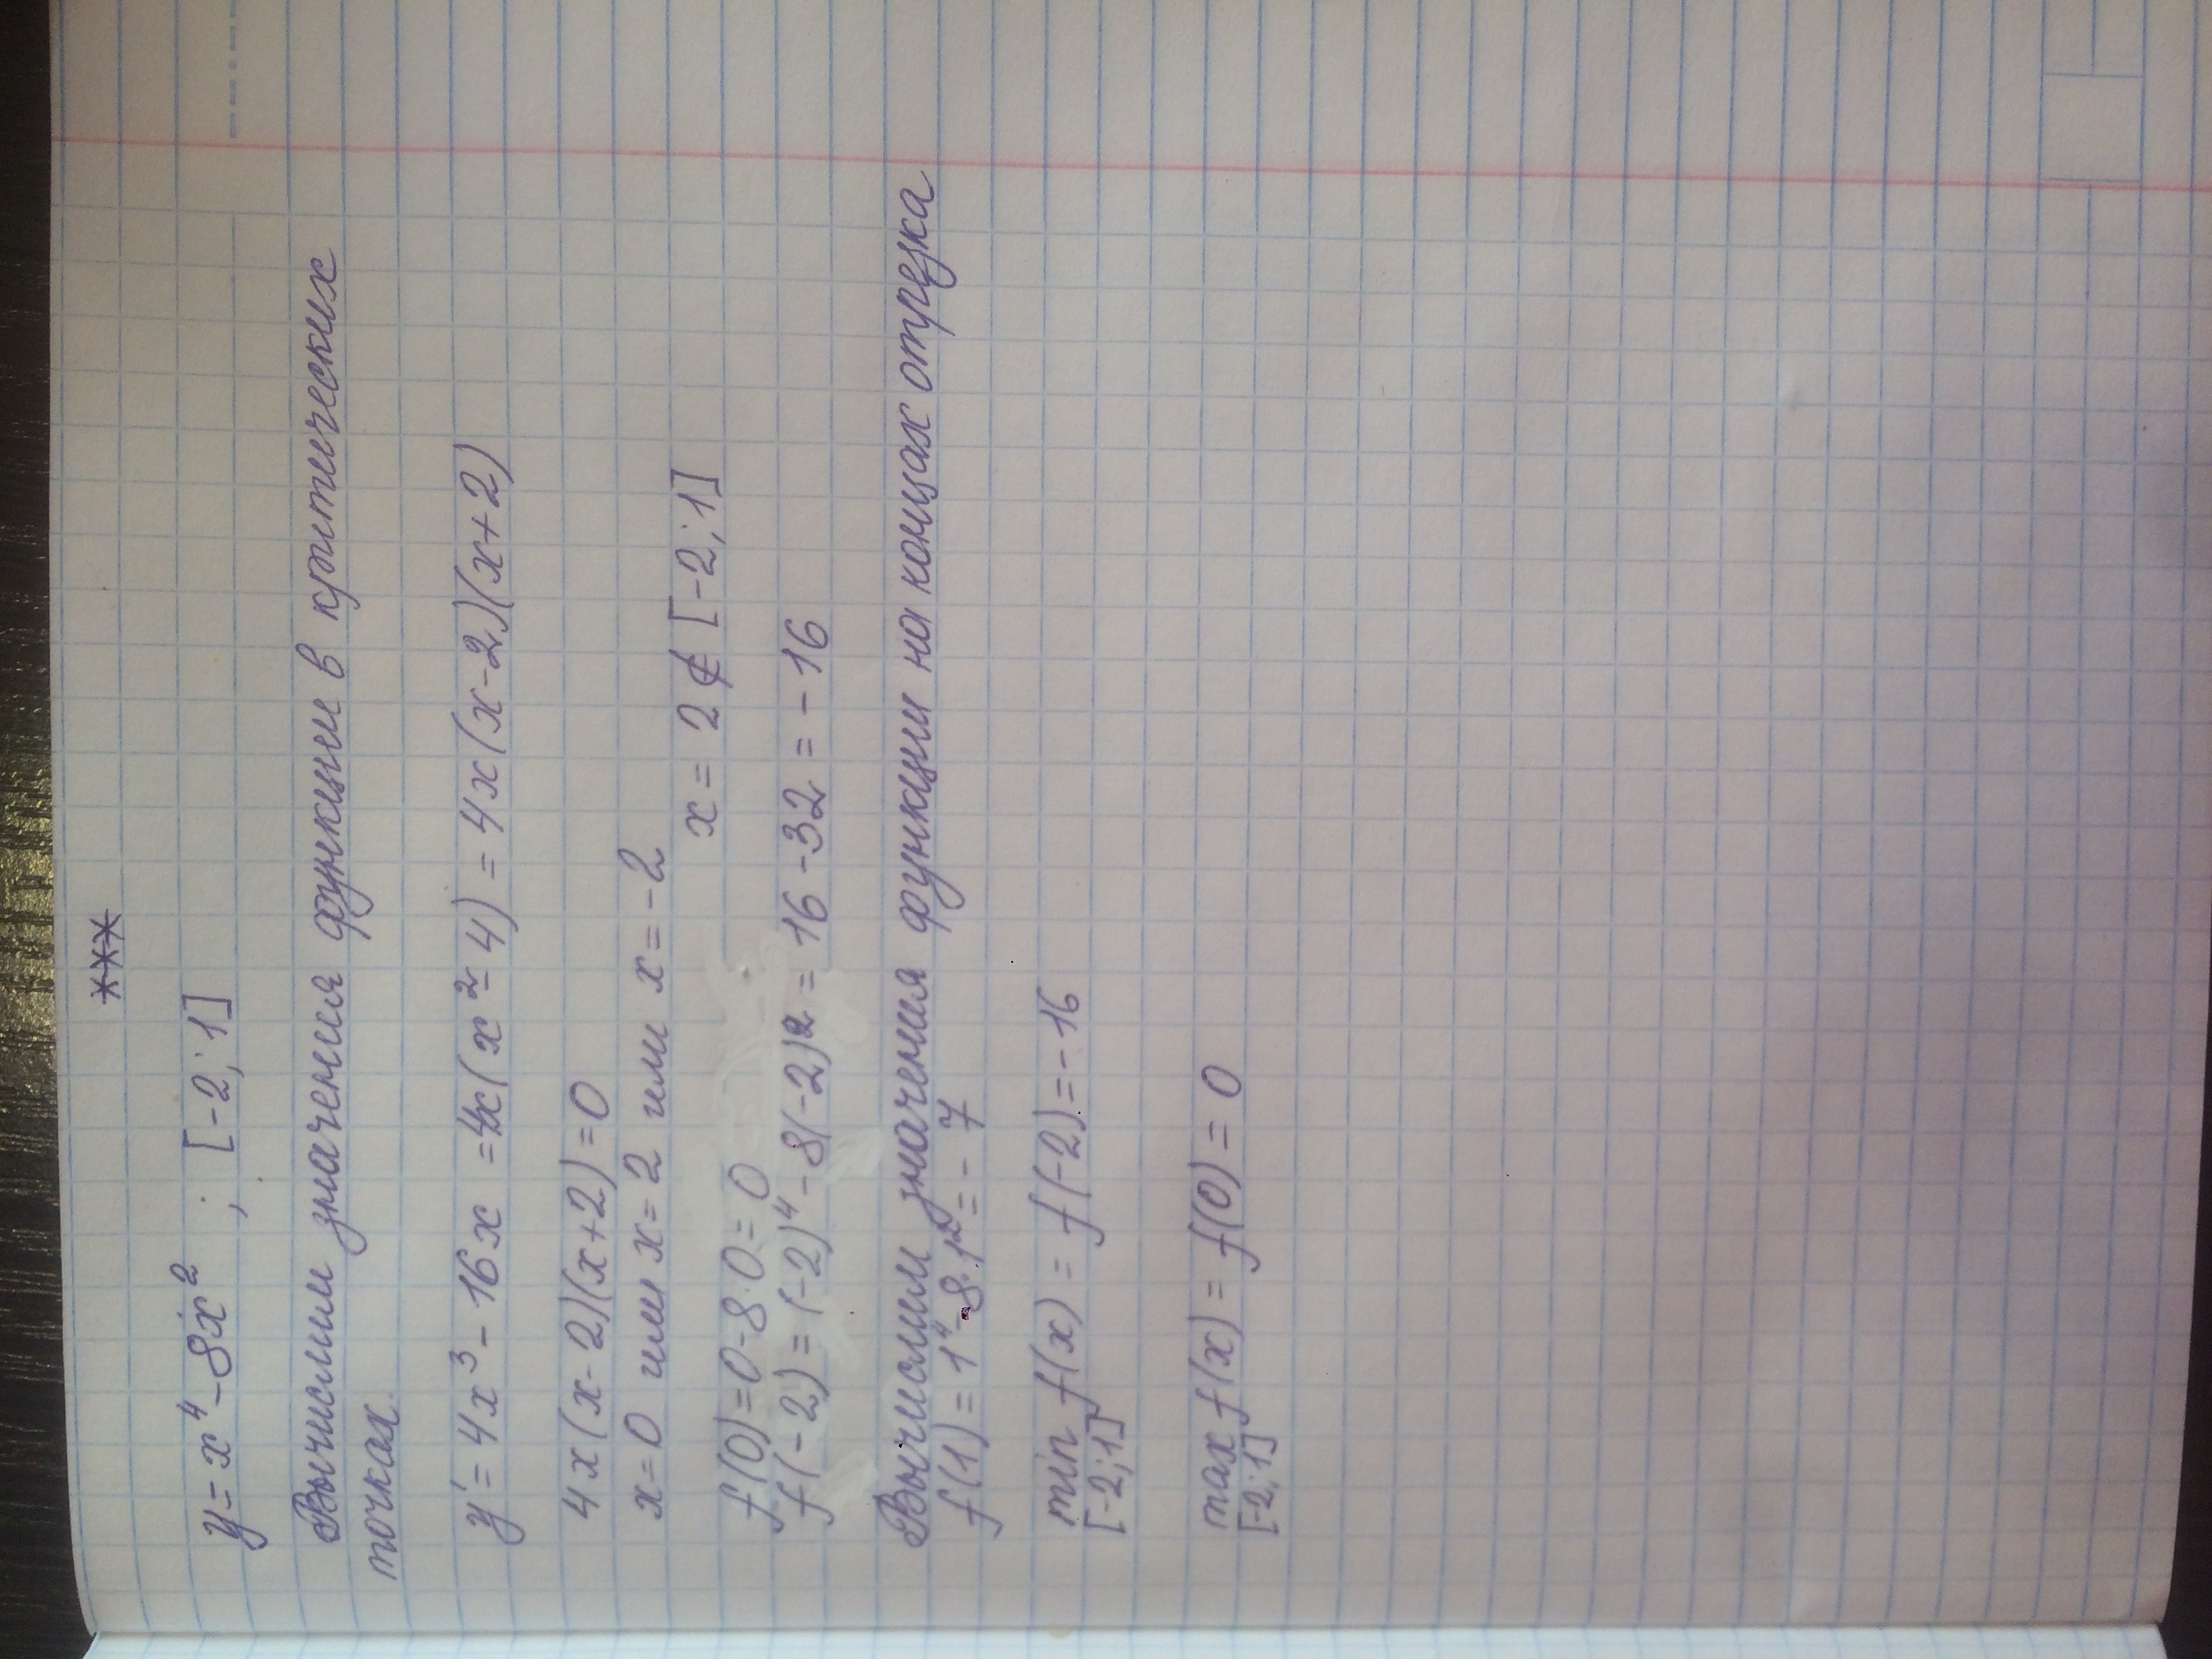 ***
y = x⁴ - 8x² ; [-2; 1]
Вычислим значения функции в критических
точках.
y' = 4x³ - 16x = 4x(x² - 4) = 4x(x-2)(x+2)
4x(x-2)(x+2) = 0
x=0 или x=2 или x=-2
x = 2 ∉ [-2; 1]
f(0) = 0 - 8·0 = 0
f(-2) = (-2)⁴ - 8(-2)² = 16 - 32 = -16
Вычислим значения функции на концах отрезка
f(1) = 1⁴ - 8·1² = -7
min f(x) = f(-2) = -16
[-2; 1]
max f(x) = f(0) = 0
[-2; 1]